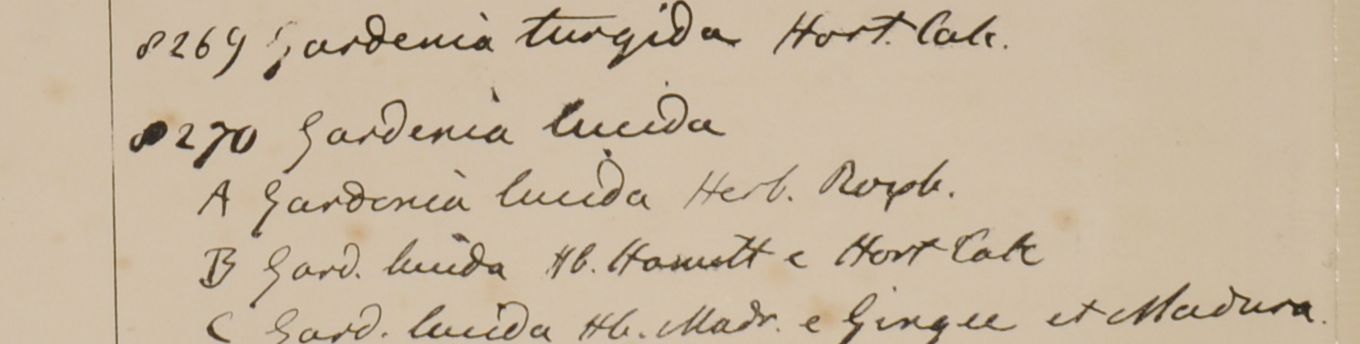 8269 Gardenia turgida Hort. Calc.
8270 Gardenia lucida
A Gardenia lucida Herb. Roxb.
B Gard. lucida Hb. Hamilt e Hort Calc
C Gard. lucida Hb. Madr. e Gingee et Madura.